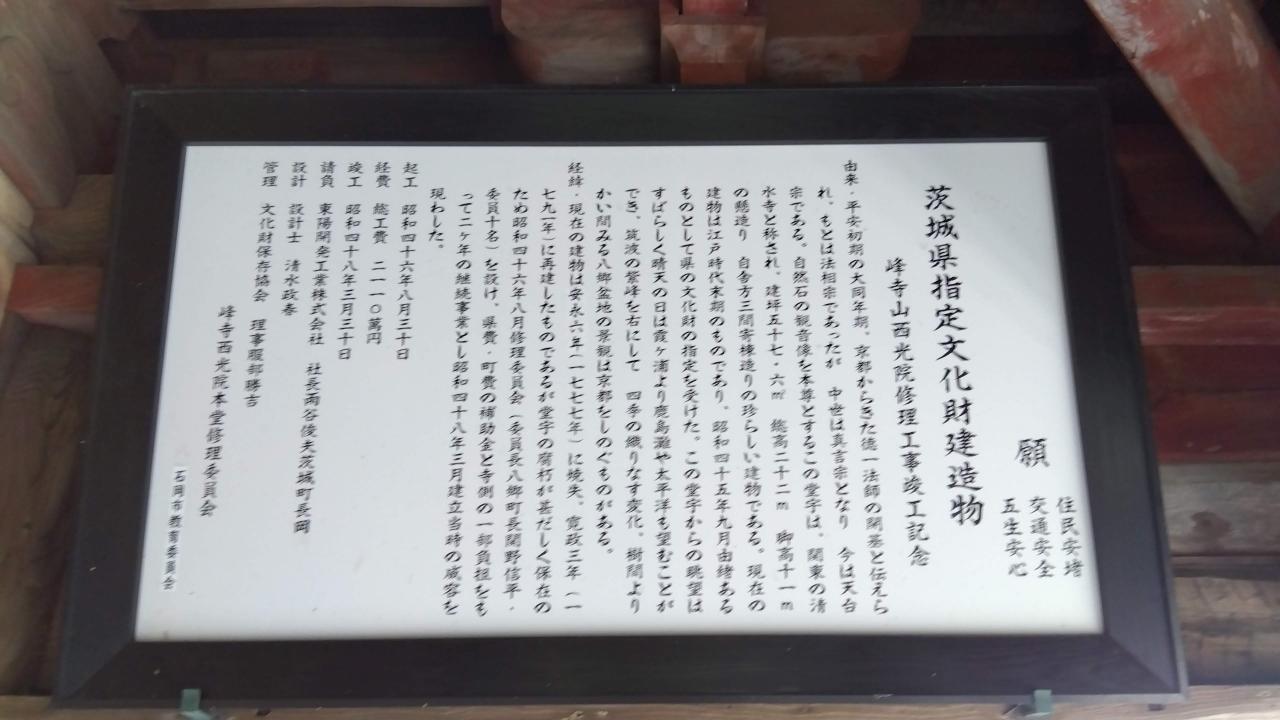 願
住民安堵
交通安全
五生安心
茨城県指定文化財建造物
峰寺山西光院修理工事竣工記念
由来・平安初期の大同年期、京都からきた徳一法師の開基と伝えら
れ、もとは法相宗であったが 中世は真言宗となり 今は天台
宗である。自然石の観音像を本尊とするこの堂宇は、関東の清
水寺と称され、建坪五十七・六㎡ 総高二十二m 脚高十一m
の懸造り 自舎方三間寄棟造りの珍らしい建物である。現在の
建物は江戸時代末期のものであり、昭和四十五年九月由緒ある
ものとして県の文化財の指定を受けた。この堂宇からの眺望は
すばらしく晴天の日は霞ヶ浦より鹿島灘や太平洋も望むことが
でき、筑波の紫峰を右にして 四季の織りなす変化、樹間より
かい間みる八郷盆地の景観は京都をしのぐものがある。
経緯・現在の建物は安永六年(一七七七年)に焼失、寛政三年(一
七九一年)に再建したものであるが堂宇の腐朽が甚だしく保在の
ため昭和四十六年八月修理委員会(委員長八郷町長関野信平・
委員十名)を設け、県費・町費の補助金と寺側の一部負担をも
って二ヶ年の継続事業とし昭和四十八年三月建立当時の威容を
現わした。
起工 昭和四十六年八月三十日
経費 総工費 二一一〇萬円
竣工 昭和四十八年三月三十日
請負 東陽開発工業株式会社 社長両谷俊夫茨城町長岡
設計 設計士 清水政春
管理 文化財保存協会 理事服部勝吉
峰寺西光院本堂修理委員会
石岡市教育委員会